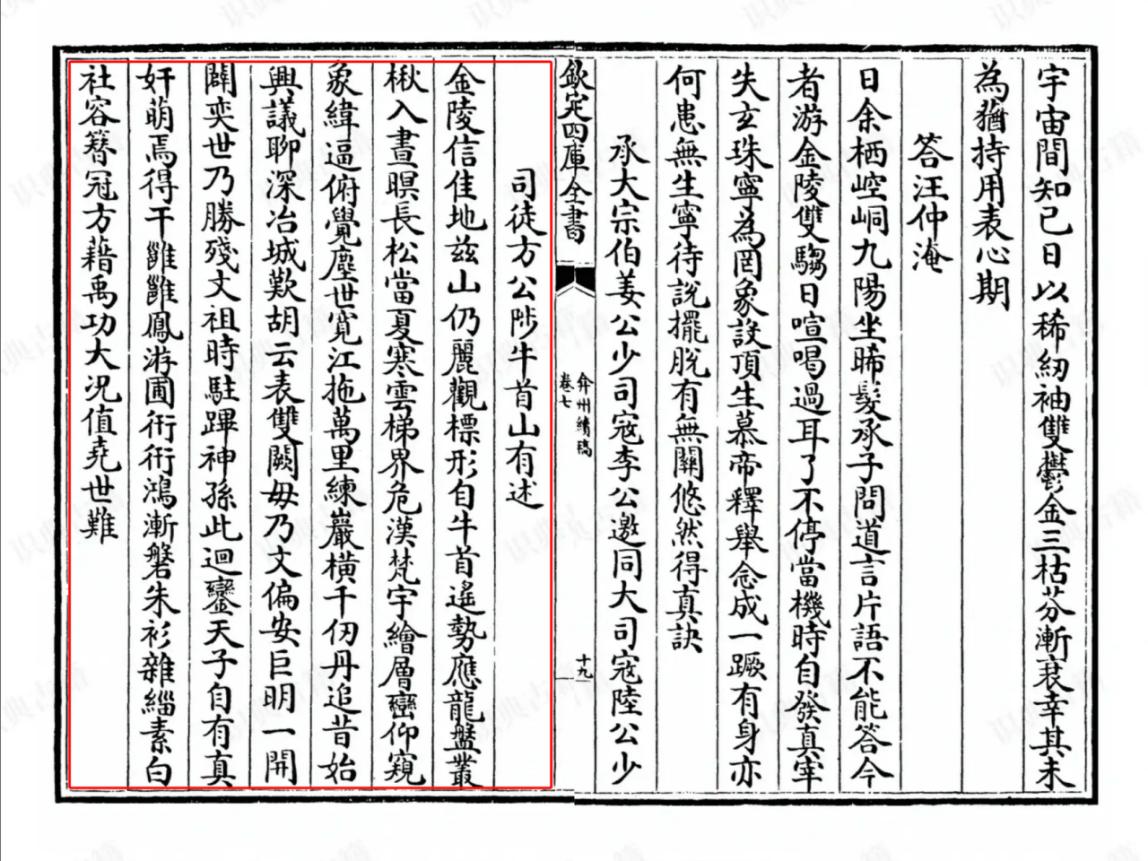 宇宙間知已日以稀紉袖雙鬱金三枯芬漸衰幸其未
為猶持用表心期
答汪仲淹
日余栖崆峒九陽坐晞髮承子問道言片語不能答今
者游金陵雙騶日喧喝過耳了不停當機時自發真宰
失玄珠寧為罔象設頂生慕帝釋舉念成一蹶有身亦
何患無生寧待說擺脫有無關悠然得真訣
承大宗伯姜公少司寇李公邀同大司寇陸公少
欽定四庫全書
弇州續稿
卷七
十九
司徒方公陟牛首山有述
金陵信佳地兹山仍麗觀標形自牛首遙勢應龍盤叢
楸入晝暝長松當夏寒雲梯界危漢梵宇繪層巒仰窺
象緯逼俯覺塵世寬江拖萬里練巖横千仞丹追昔始
興議聊深冶城歎胡云表雙闕毋乃文偏安巨明一開
闢奕世乃勝殘文祖時駐蹕神孫此迴鑾天子自有真
奸萌焉得干雝雝鳳游圃衎衎鴻漸磐朱衫雜緇素白
社容簪冠方藉禹功大况值堯世難